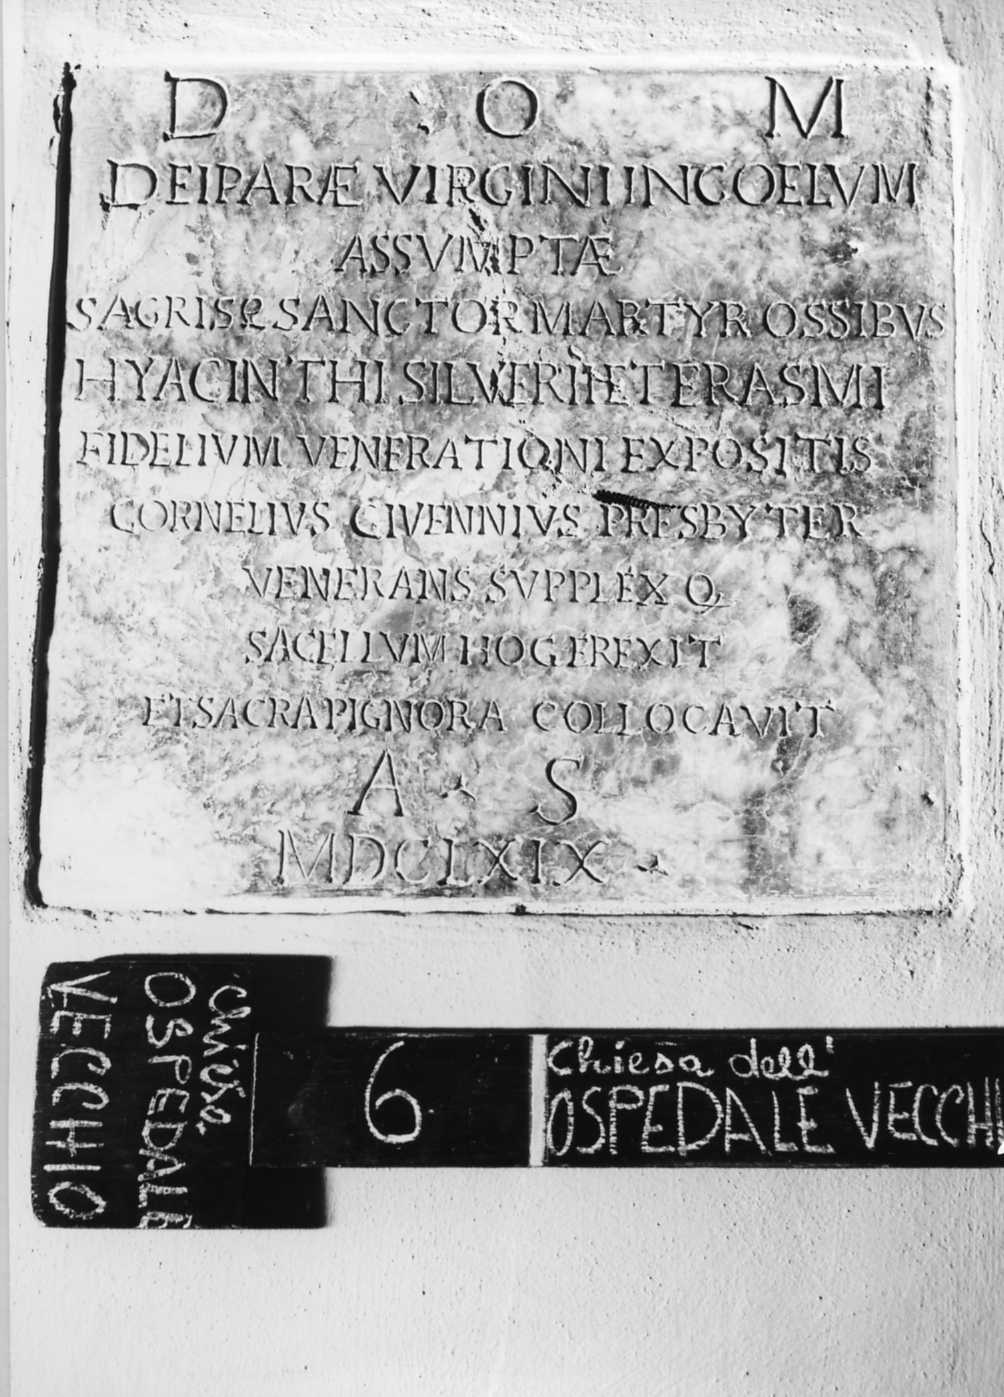 D O M
DEIPARÆ VIRGINI IN COELVM
ASSVMPTÆ
SACRISQ SANCTOR MARTYR OSSIBVS
HYACINTHI SILVERII ET ERASMI
FIDELIVM VENERATIONI EXPOSITIS
CORNELIVS CIVENNIVS PRESBYTER
VENERANS SVPPLEX Q
SACELLVM HOC EREXIT
ET SACRA PIGNORA COLLOCAVIT
A · S
MDCLXIX ·
chiesa
OSPEDALE
VECCHIO
6
Chiesa dell'
OSPEDALE VECCHI